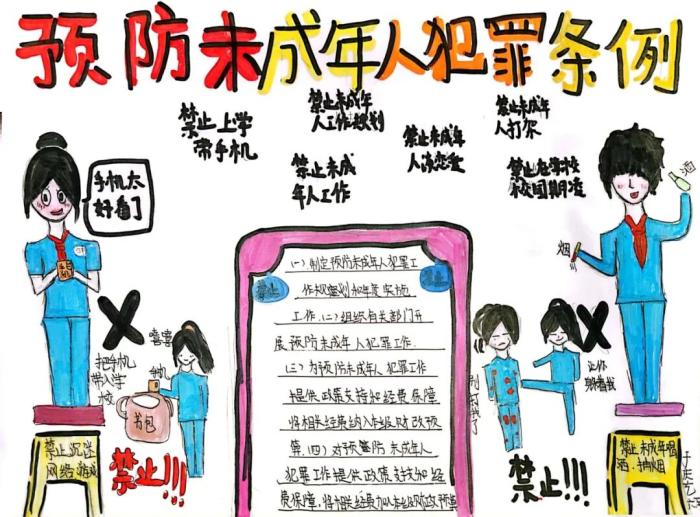 预防未成年人犯罪条例
禁止上学
带手机
禁止未成年
人工作规划
禁止未成
年人工作
禁止未成年
人谈恋爱
禁止未成年
人打架
禁止在学校
校园期凌
手机太
好看了
酒
烟
把手机
带入学
校
嘻嘻
手机
书包
禁止!!!
禁止沉迷
网络游戏
禁止
禁止
(一)制定预防未成年人犯罪工
作规划和年度实施
工作.(二)组织有关部门开
展预防未成年人犯罪工作.
(三)为预防未成年人犯罪工作
提供政策支持和经费保障
将相关经费纳入本级财政预
算.(四)对预警防未成年人
犯罪工作提供政策支持和经
费保障,将相关经费加入本级财政预算
别打我了
让你
禁止!!!
禁止未成年喝
酒、抽烟